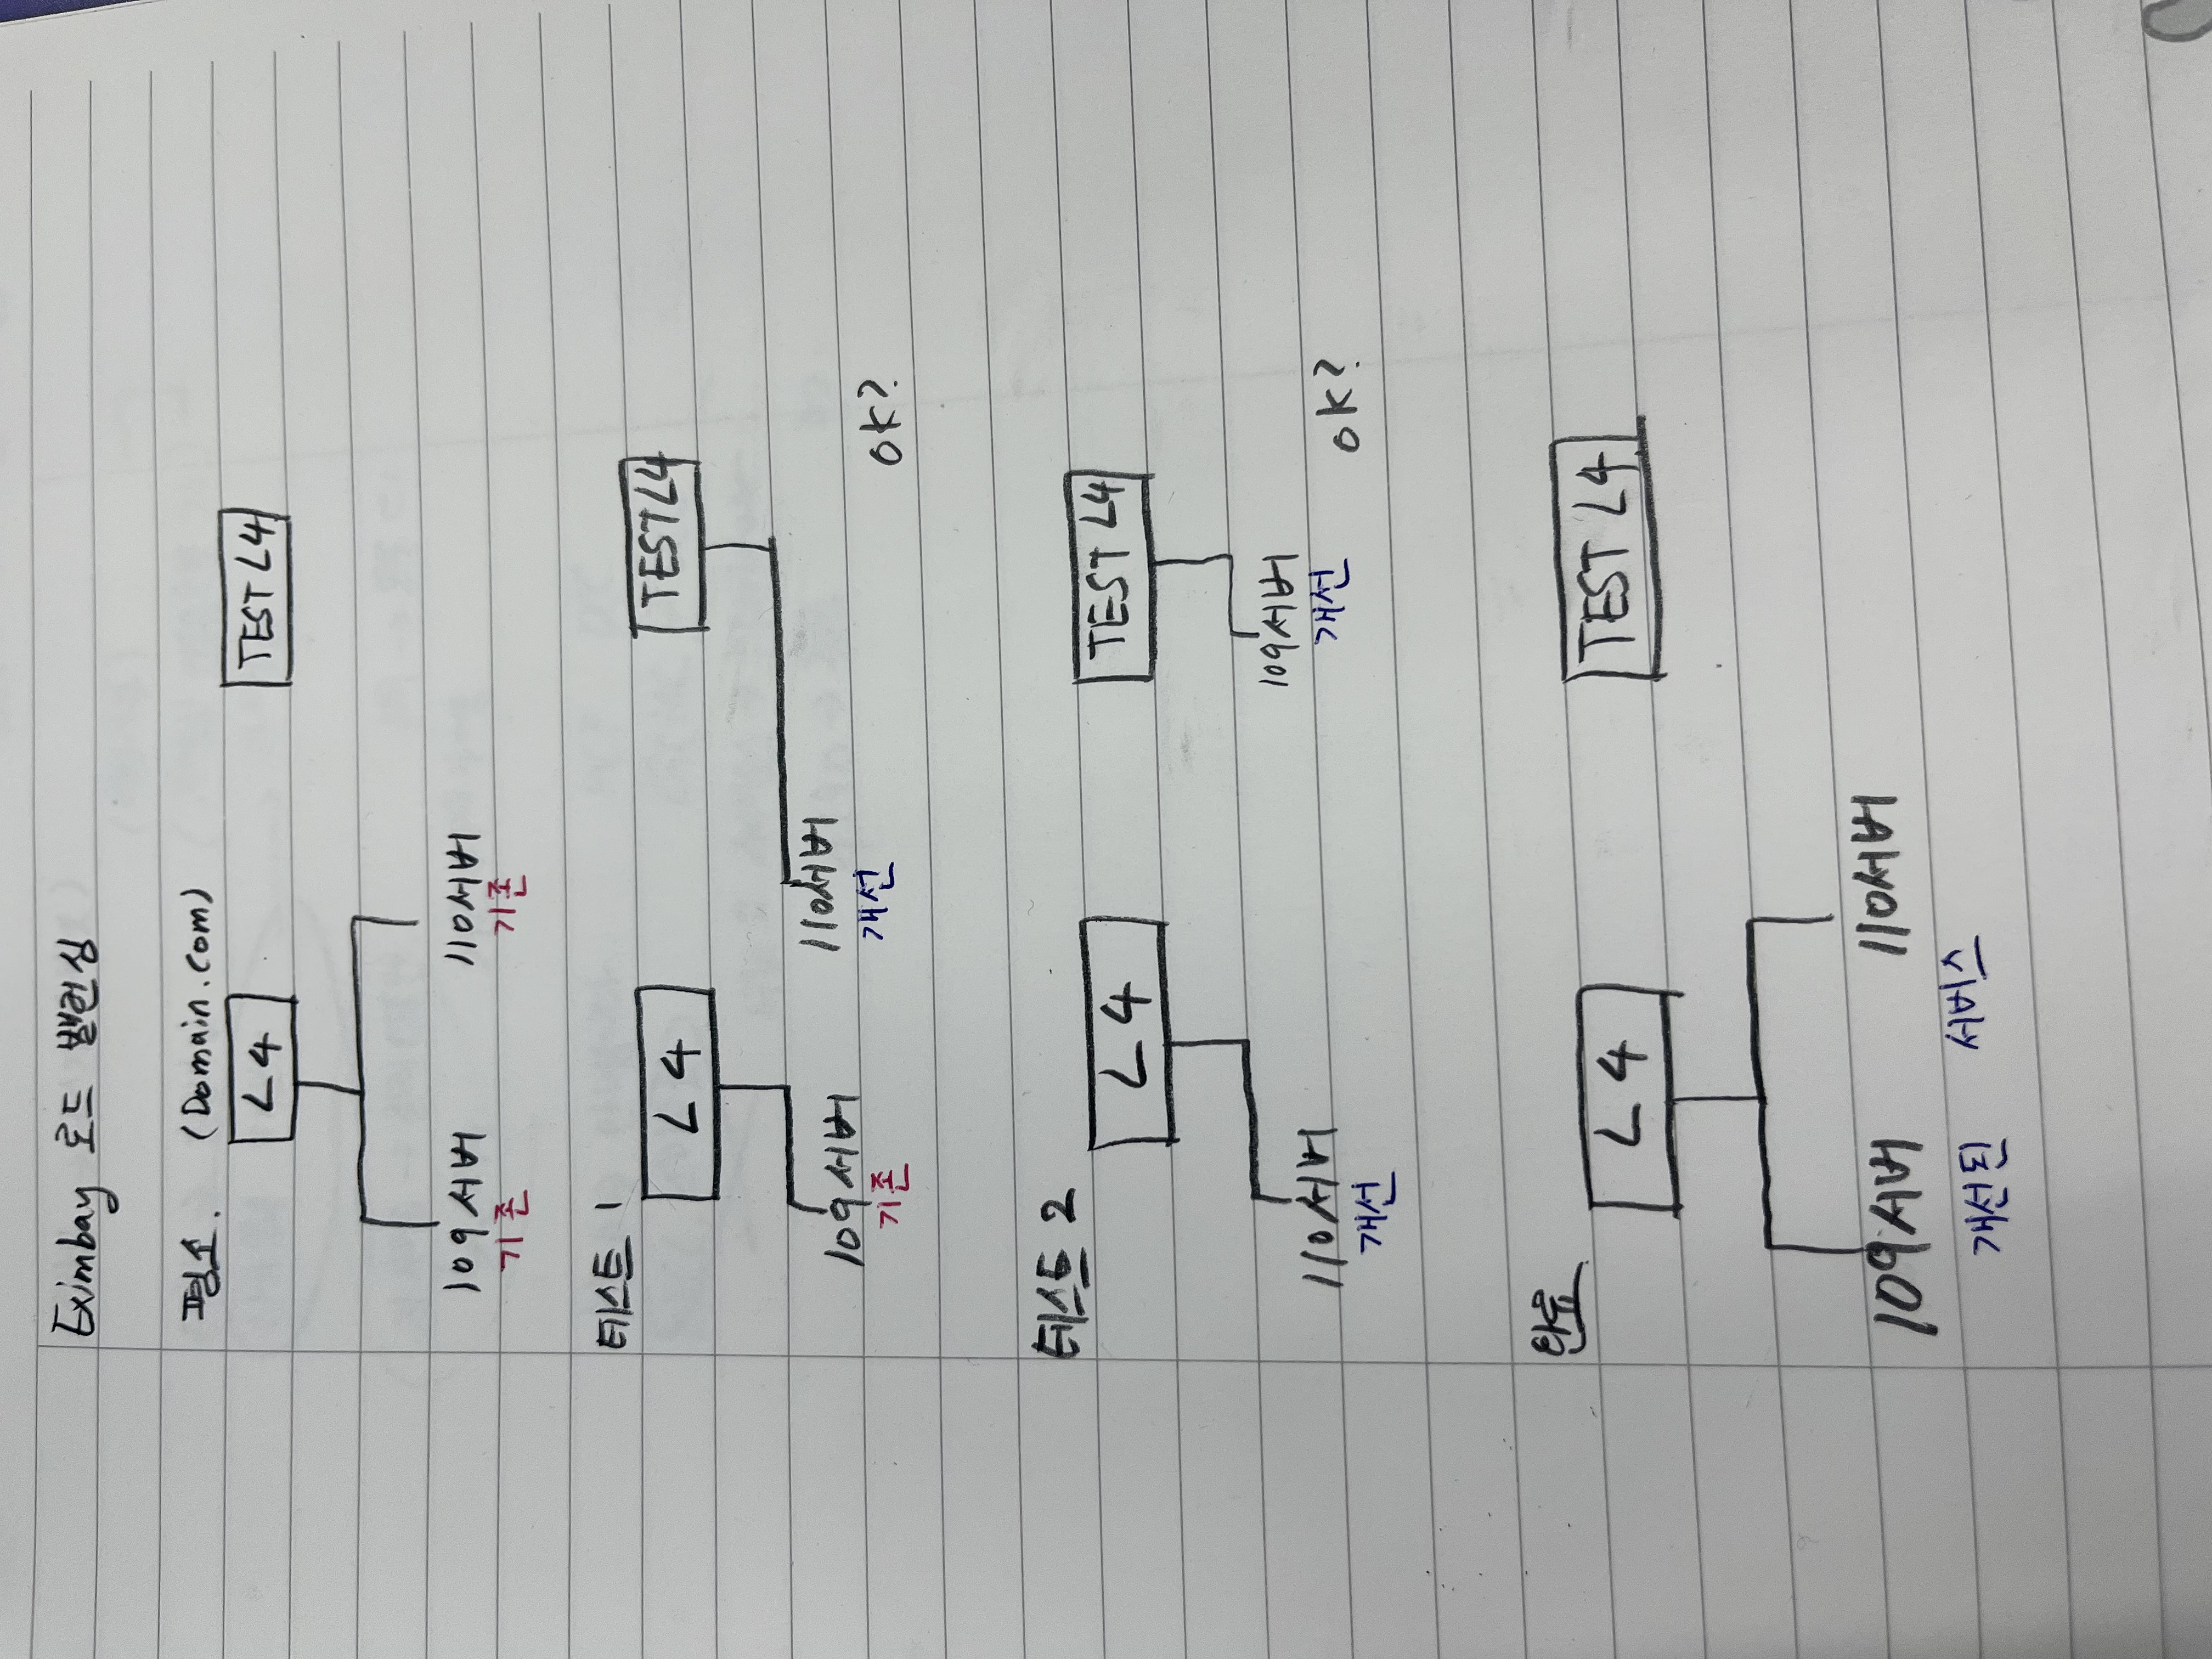 Eximbay 로드 밸런싱
평소. (Domain.com)
L4 TEST L4
109서버 110서버
기존 기존
테스트 1
L4 TEST L4
109서버 110서버
기존 개선 OK?
테스트 2
L4 TEST L4
110서버 109서버
개선 개선 OK?
완료
L4 TEST L4
109서버 110서버
개선된 서버스